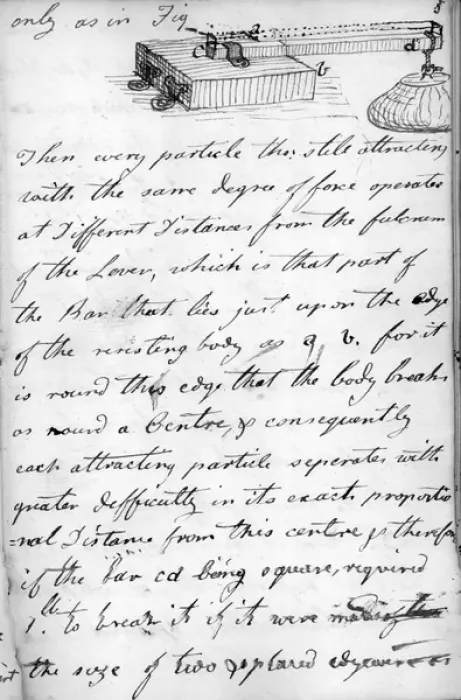 only as in Fig
a
c
d
b
8
Then every particle tho: still attracting
with the same degree of force operates
at Different Distances from the fulcrum
of the Lever, which is that part of
the Bar that lies just upon the edge
of the resisting body as a b. for it
is round this edge that the body breaks
as round a Centre, & consequently
each attracting particle seperates with
greater defficulty in its exact proportio
=nal Distance from this centre & therefor
if the bar cd being square, required
1 lb to break it if it were made of
the size of two & placed edgewise